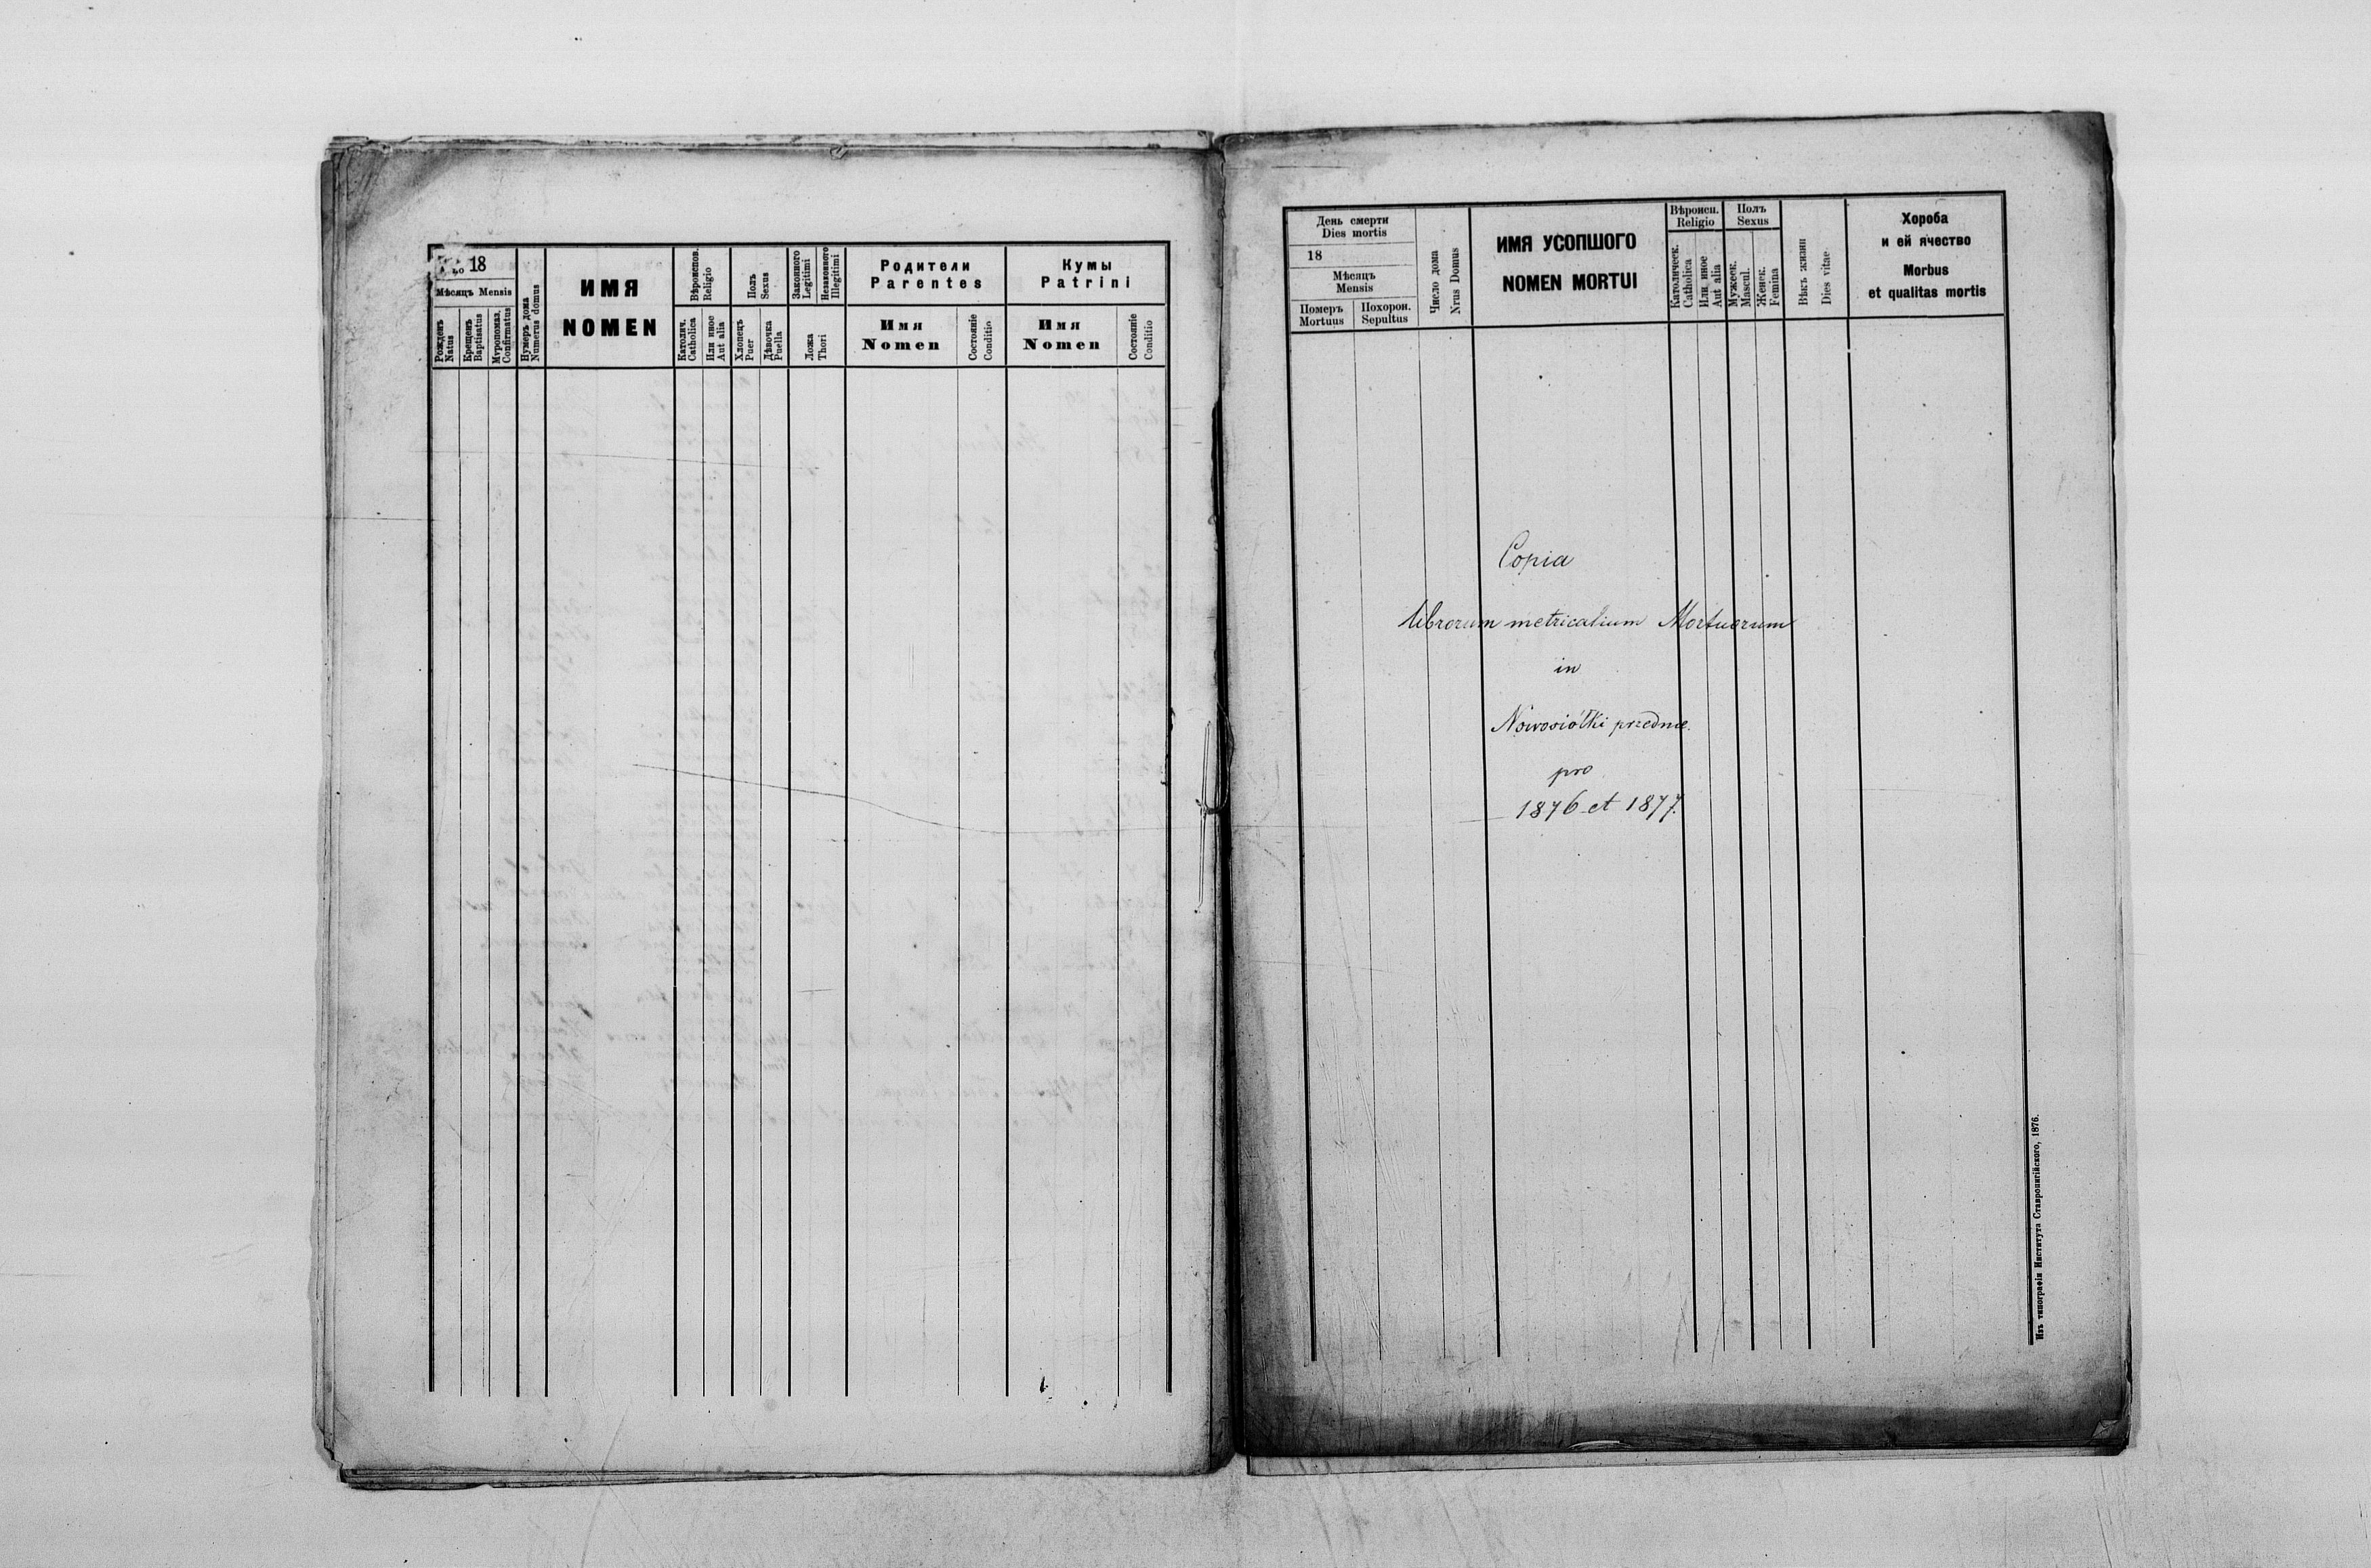 18
Мѣсяцъ Mensis
Рожденъ
Natus
Крещенъ
Baptisatus
Мѵропомаз.
Confirmatus
Нумеръ дома
Numerus domus
ИМЯ
NOMEN
Вѣроиспов.
Religio
Католич.
Catholica
Или иное
Aut alia
Полъ
Sexus
Хлопецъ
Puer
Дѣвочка
Puella
Законного
Legitimi
Незаконного
Illegitimi
Ложа
Thori
Родители
Parentes
Имя
Nomen
Состояніе
Conditio
Кумы
Patrini
Имя
Nomen
Состояніе
Conditio
День смерти
Dies mortis
18
Мѣсяцъ
Mensis
Померъ
Mortuus
Похорон.
Sepultus
Число дома
Nrus Domus
ИМЯ УСОПШОГО
NOMEN MORTUI
Вѣроисп.
Religio
Католическ.
Catholica
Или иное
Aut alia
Полъ
Sexus
Мужеск.
Mascul.
Женск.
Femina
Вѣкъ жизни
Dies vitae
Хороба
и ей ячество
Morbus
et qualitas mortis
Copia
librorum metricalium Mortuorum
in
Nowosiółki przednie.
pro
1876 et 1877.
Изъ типографіи Института Ставропигійского, 1876.